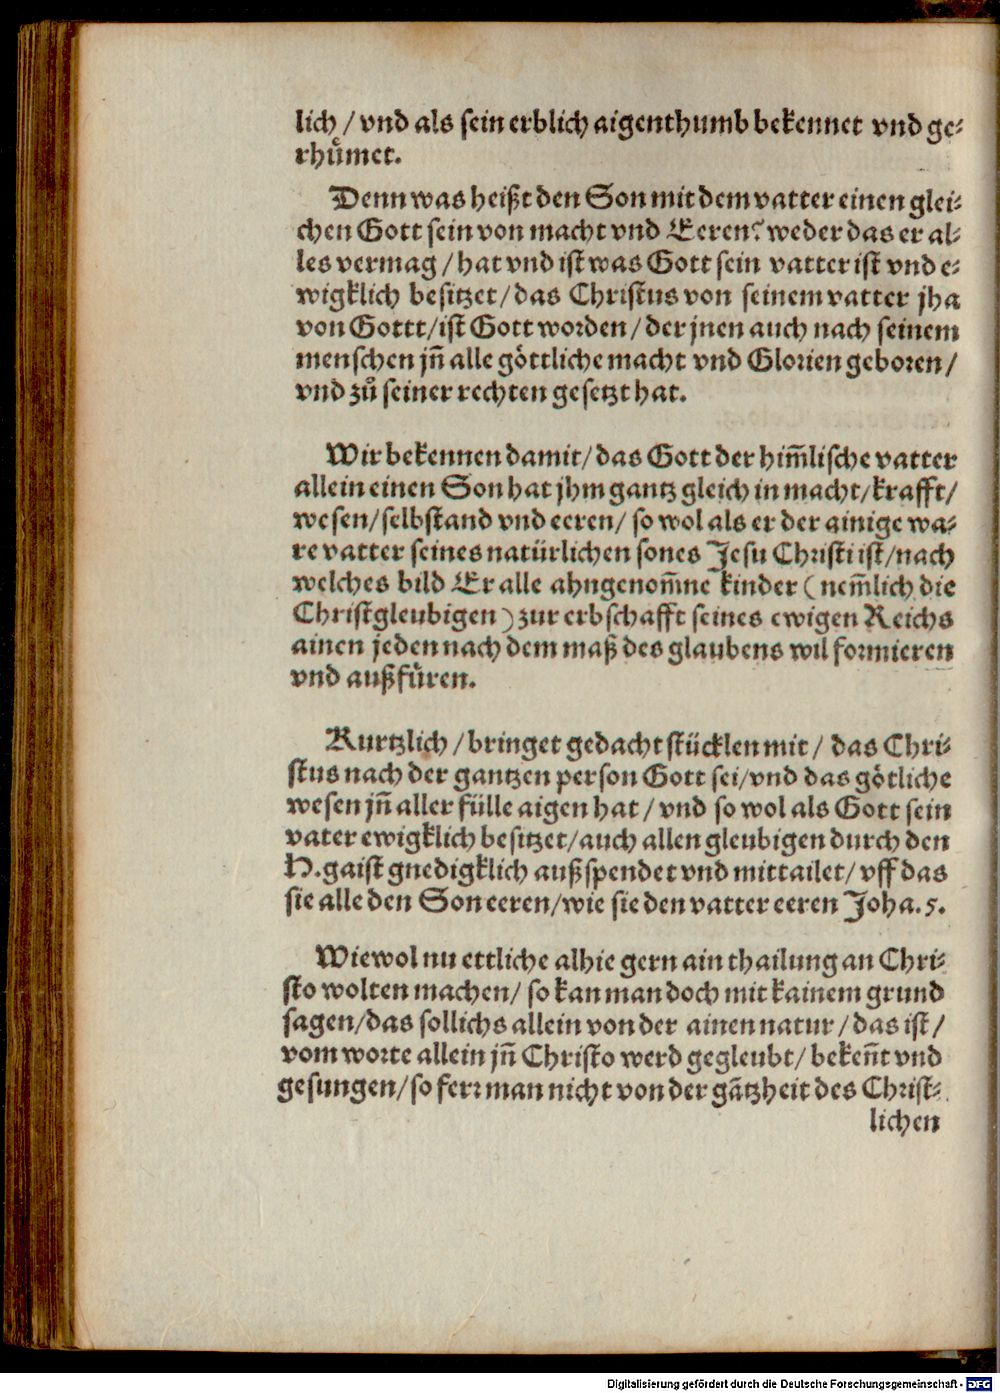 lich / vnd als sein erblich aigenthumb bekennet vnd ge⸗
rhuͤmet.
Denn was heißt den Son mit dem vatter einen glei⸗
chen Gott sein von macht vnd Eeren? weder das er al⸗
les vermag / hat vnd ist was Gott sein vatter ist vnd e⸗
wigklich besitzet / das Christus von seinem vatter jha
von Gottt / ist Gott worden / der jnen auch nach seinem
menschen jn̄ alle göttliche macht vnd Glorien geboren /
vnd zů seiner rechten gesetzt hat.
Wir bekennen damit / das Gott der him̄lische vatter
allein einen Son hat jhm gantz gleich in macht / krafft /
wesen / selbstand vnd eeren / so wol als er der ainige wa⸗
re vatter seines natürlichen sones Jesu Christi ist / nach
welches bild Er alle ahngenom̄ne kinder ( nem̄lich die
Christgleubigen ) zur erbschafft seines ewigen Reichs
ainen jeden nach dem maß des glaubens wil formieren
vnd außfüren.
Kurtzlich / bringet gedacht stücklen mit / das Chri⸗
stus nach der gantzen person Gott sei / vnd das götliche
wesen jn̄ aller fülle aigen hat / vnd so wol als Gott sein
vater ewigklich besitzet / auch allen gleubigen durch den
H. gaist gnedigklich außspendet vnd mittailet / vff das
sie alle den Son eeren / wie sie den vatter eeren Joha. 5.
Wiewol nu ettliche alhie gern ain thailung an Chri⸗
sto wolten machen / so kan man doch mit kainem grund
sagen / das sollichs allein von der ainen natur / das ist /
vom worte allein jn̄ Christo werd gegleubt / beken̄t vnd
gesungen / so ferr man nicht von der gātzheit des Christ⸗
lichen
Digitalisierung gefördert durch die Deutsche Forschungsgemeinschaft - DFG